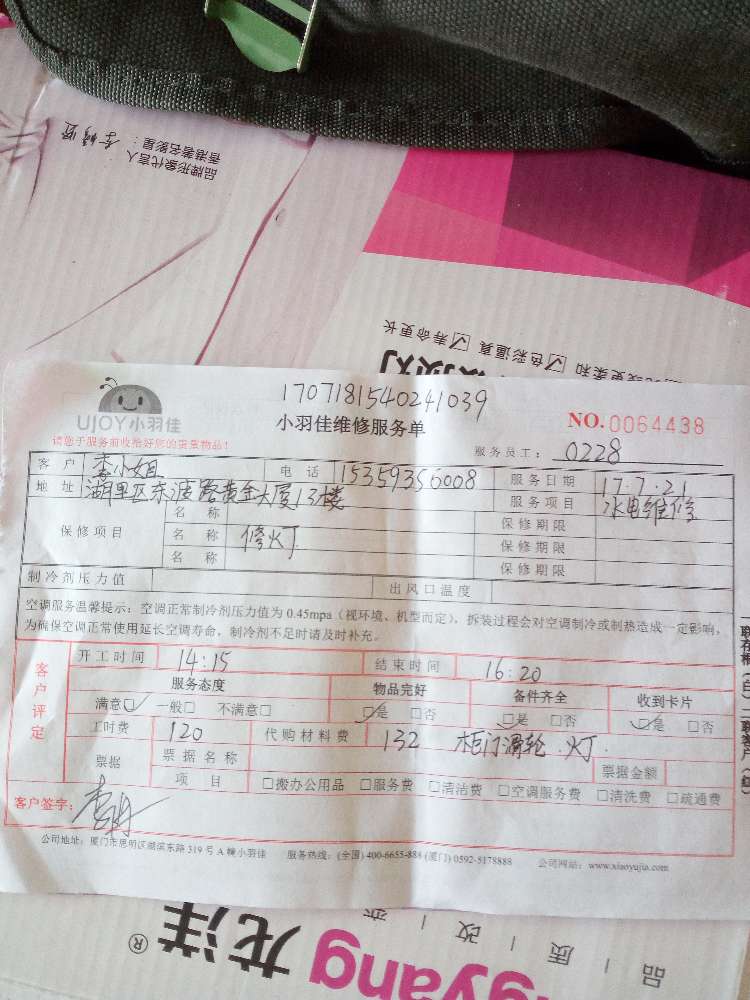 李嘉欣
香港著名影星
品牌形象代言人
光线更柔和 ☑色彩逼真 ☑寿命更长
1707181540241039
UJOY小羽佳
小羽佳维修服务单
NO.0064438
请您于服务前收拾好您的贵重物品！
服务员工：0228
客户 李小姐 电话 15359356008 服务日期 17.7.21
地址 湖里区东渡路黄金大厦13楼 服务项目 水电维修
保修项目 名称 保修期限
名称 修灯 保修期限
名称 保修期限
制冷剂压力值 出风口温度
空调服务温馨提示：空调正常制冷剂压力值为 0.45mpa（视环境、机型而定），拆装过程会对空调制冷或制热造成一定影响，
为确保空调正常使用延长空调寿命，制冷剂不足时请及时补充。
客户评定
开工时间 14:15 结束时间 16:20
服务态度 物品完好 备件齐全 收到卡片
满意☑ 一般□ 不满意□ ☑是 □否 ☑是 □否 ☑是 □否
工时费 120 代购材料费 132 柜门滑轮.灯.
票据 票据名称 票据金额
项目 □搬办公用品 □服务费 □清洁费 □空调服务费 □清洗费 □疏通费
客户签字：
公司地址：厦门市思明区湖滨东路 319 号 A 幢小羽佳 服务热线：(全国) 400-6655-888 (厦门) 0592-5178888 公司网站：www.xiaoyujia.com
品 | 质 | 改 | 变
gyang 龙洋®